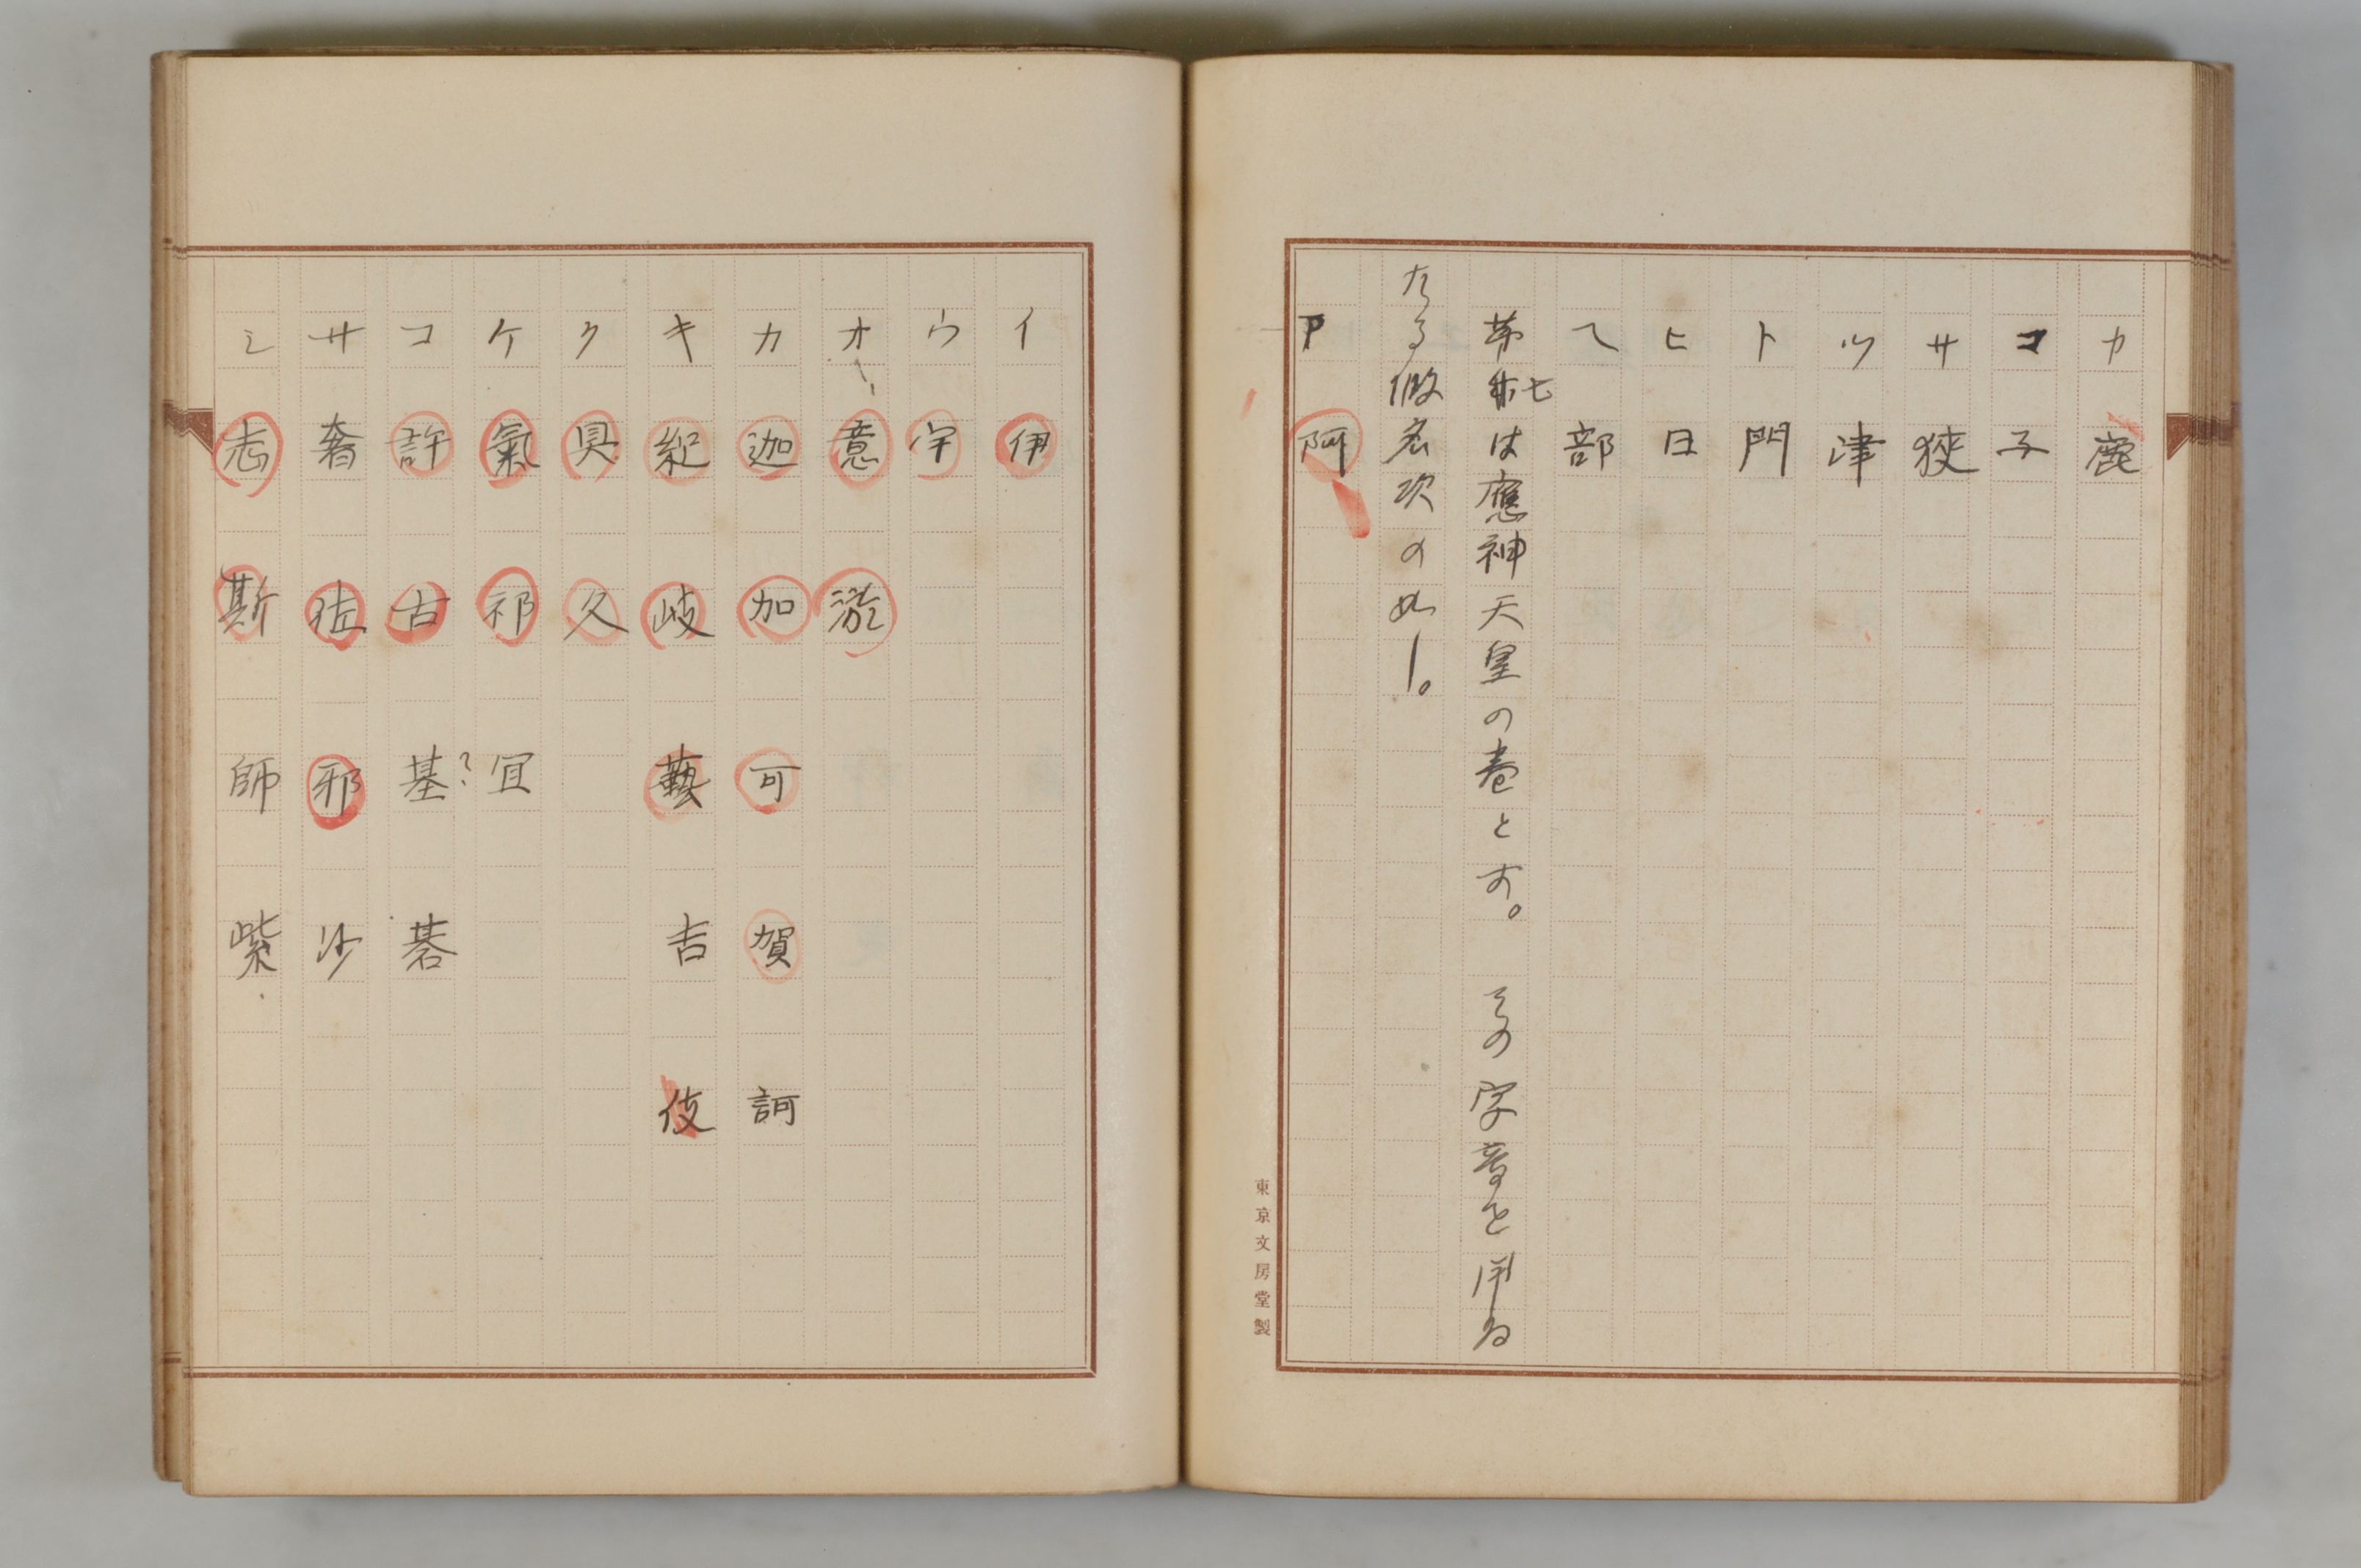 カ 鹿
コ 子
サ 狹
ツ 津
ト 門
ヒ 日
へ 部
第七は應神天皇の巻とす。その字音を用ゐ
たる假名次の如し。
ア 阿
東京文房堂製
イ 伊
ウ 宇
オ 意 淤
カ 迦 加 可 賀 訶
キ 紀 岐 藝 吉 伎
ク 具 久
ケ 氣 祁 宜
コ 許 古 基? 碁
サ 奢 佐 邪 沙
シ 志 斯 師 紫